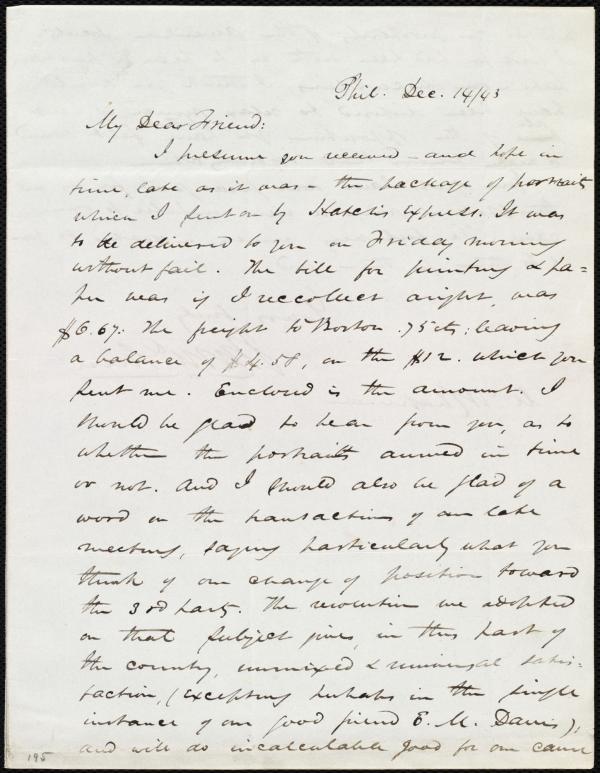 Phil. Dec. 14/43
My Dear Friend:
I presume you received – and hope in
time, late as it was – the package of portraits
which I sent on by Hatch's Express. It was
to be delivered to you on Friday morning
without fail. The bill for printing & pa=
per was if I reccolect aright, was
$6.67: the freight to Boston .75 cts; leaving
a balance of $4.58, on the $12. which you
sent me. Enclosed is the amount. I
should be glad to hear from you, as to
whether the portraits arrived in time
or not. And I should also be glad of a
word on the transactions of our late
meeting, saying particularly what you
think of our change of position toward
the 3rd party. The resolution we adopted
on that subject gives, in this part of
the country, unmixed & universal satis=
faction, (excepting perhaps in the single
instance of our good friend E. M. Davis),
and will do incalculable good for our cause
195